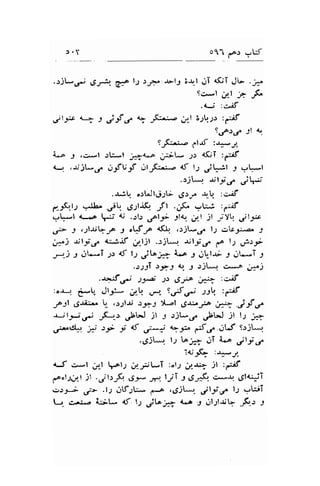 کتاب دهم ۵۹۶ ۵۰۳
میز. حال آنکه آن ایدهٔ واحد مجرد را هیچ بشری نمی‌سازد.
مگر جز این است؟
گفت: نه.
گفتم: دربارهٔ این صنعتگر چه می‌گوئی و چه عنوانی
به او می‌دهی؟
پرسید: کدام صنعتگر؟
گفتم: آنکه در ساختن همه‌چیز استاد است، و همهٔ
اسباب و اشیائی را که صنعتگران گوناگون می‌سازند، به
تنهائی می‌تواند بسازد.
گفت: باید مردی خارق‌العاده باشد.
گفتم: شتاب مکن. اگر بگذاری باقی مطلب رابگویم
عنوانی بالاتر از این به‌او خواهی داد. نه تنها همه اسباب
و مصنوعات را می‌سازد، بلکه هرگیاه و هرجاندار، و حتی
خودش را هم می‌تواند بسازد. ازاین گذشته می‌تواند زمین
و آسمان و خدایان و همهٔ چیزهائی را که در آسمان و زیر
زمین هست بسازد و به وجود آورد.
گفت: چنین هنری در تصور نمی‌گنجد.
گفتم: باور نمی‌کنی؟ پس باین سئوال پاسخ بده:
می‌گوئی چنین هنرمندی اصلا وجود ندارد، یا معتقدی اوهر
چیز را از لحاظی می‌سازد و از لحاظی دیگر نمی‌تواند
بسازد؟ گمان می‌کنم متوجه نیستی که تو خود نیز بیك‌معنی
می‌توانی همهٔ آن چیزها را بسازی.
پرسید: چگونه؟
گفتم: از چندین راه: آسانترین راهها این است که
آئینه‌ای بدست بگیری و آنرا بهر سوی بگردانی. از این‌راه‌هم
آفتاب را می‌توانی بسازی، هم ستارگان را. حتی خودت
و دیگر جانداران و همه چیزهائی را که ساختهٔ صنعت یا